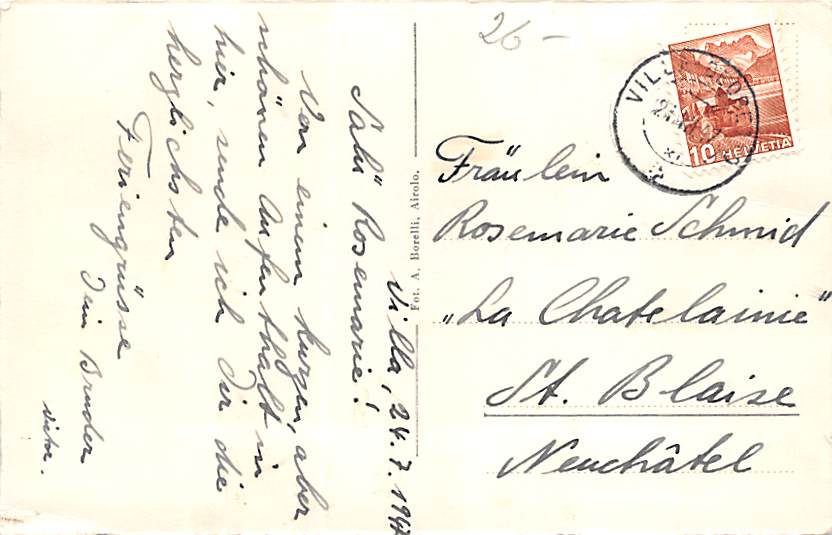 Villa, 24.7.1947
Salü Rosemarie!
Von einem kurzen, aber
schönen Aufenthalt in
hier, sende ich Dir die
herzlichsten
Feriengrüsse
Dein Bruder
Victor.
Fot. A. Borelli, Airolo.
26-
10 HELVETIA
Fräulein
Rosemarie Schmid
„La Chatelainie"
St. Blaise
Neuchâtel